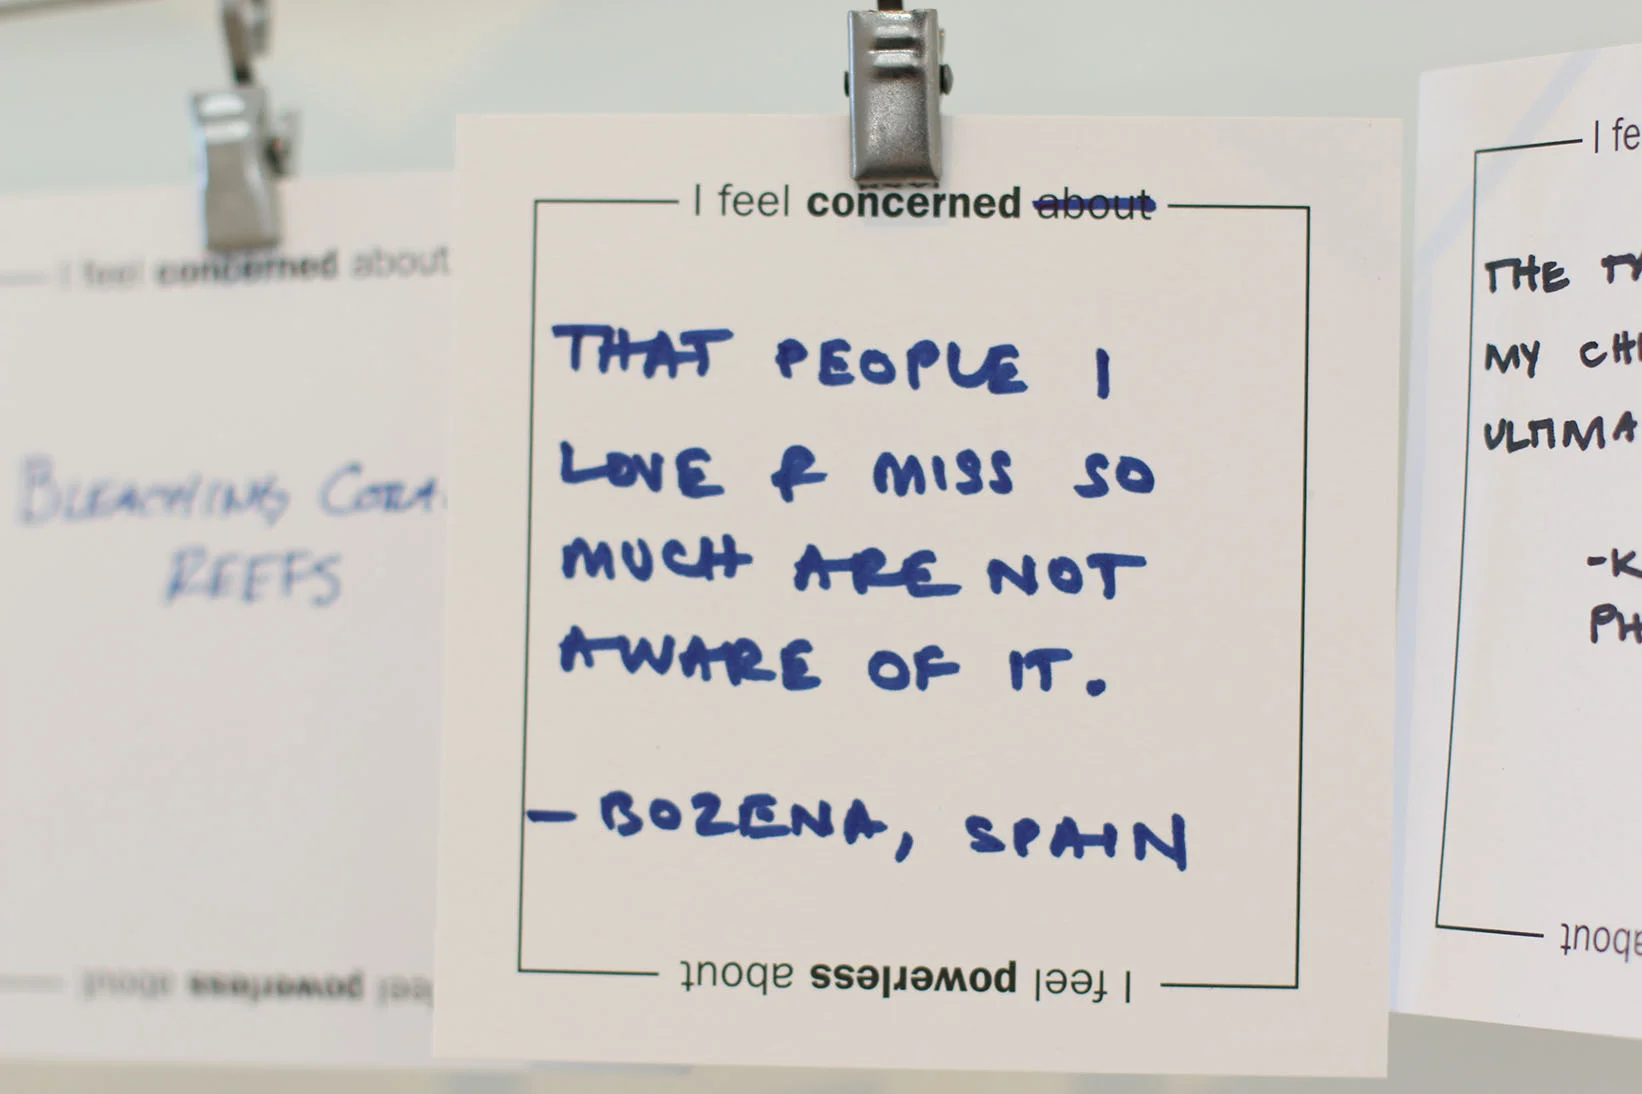 I feel concerned about
BLEACHING
REEFS
I feel powerless about
I feel concerned about
THAT PEOPLE I
LOVE & MISS SO
MUCH ARE NOT
AWARE OF IT.
- BOZENA, SPAIN
I feel powerless about
I
THE
MY
about